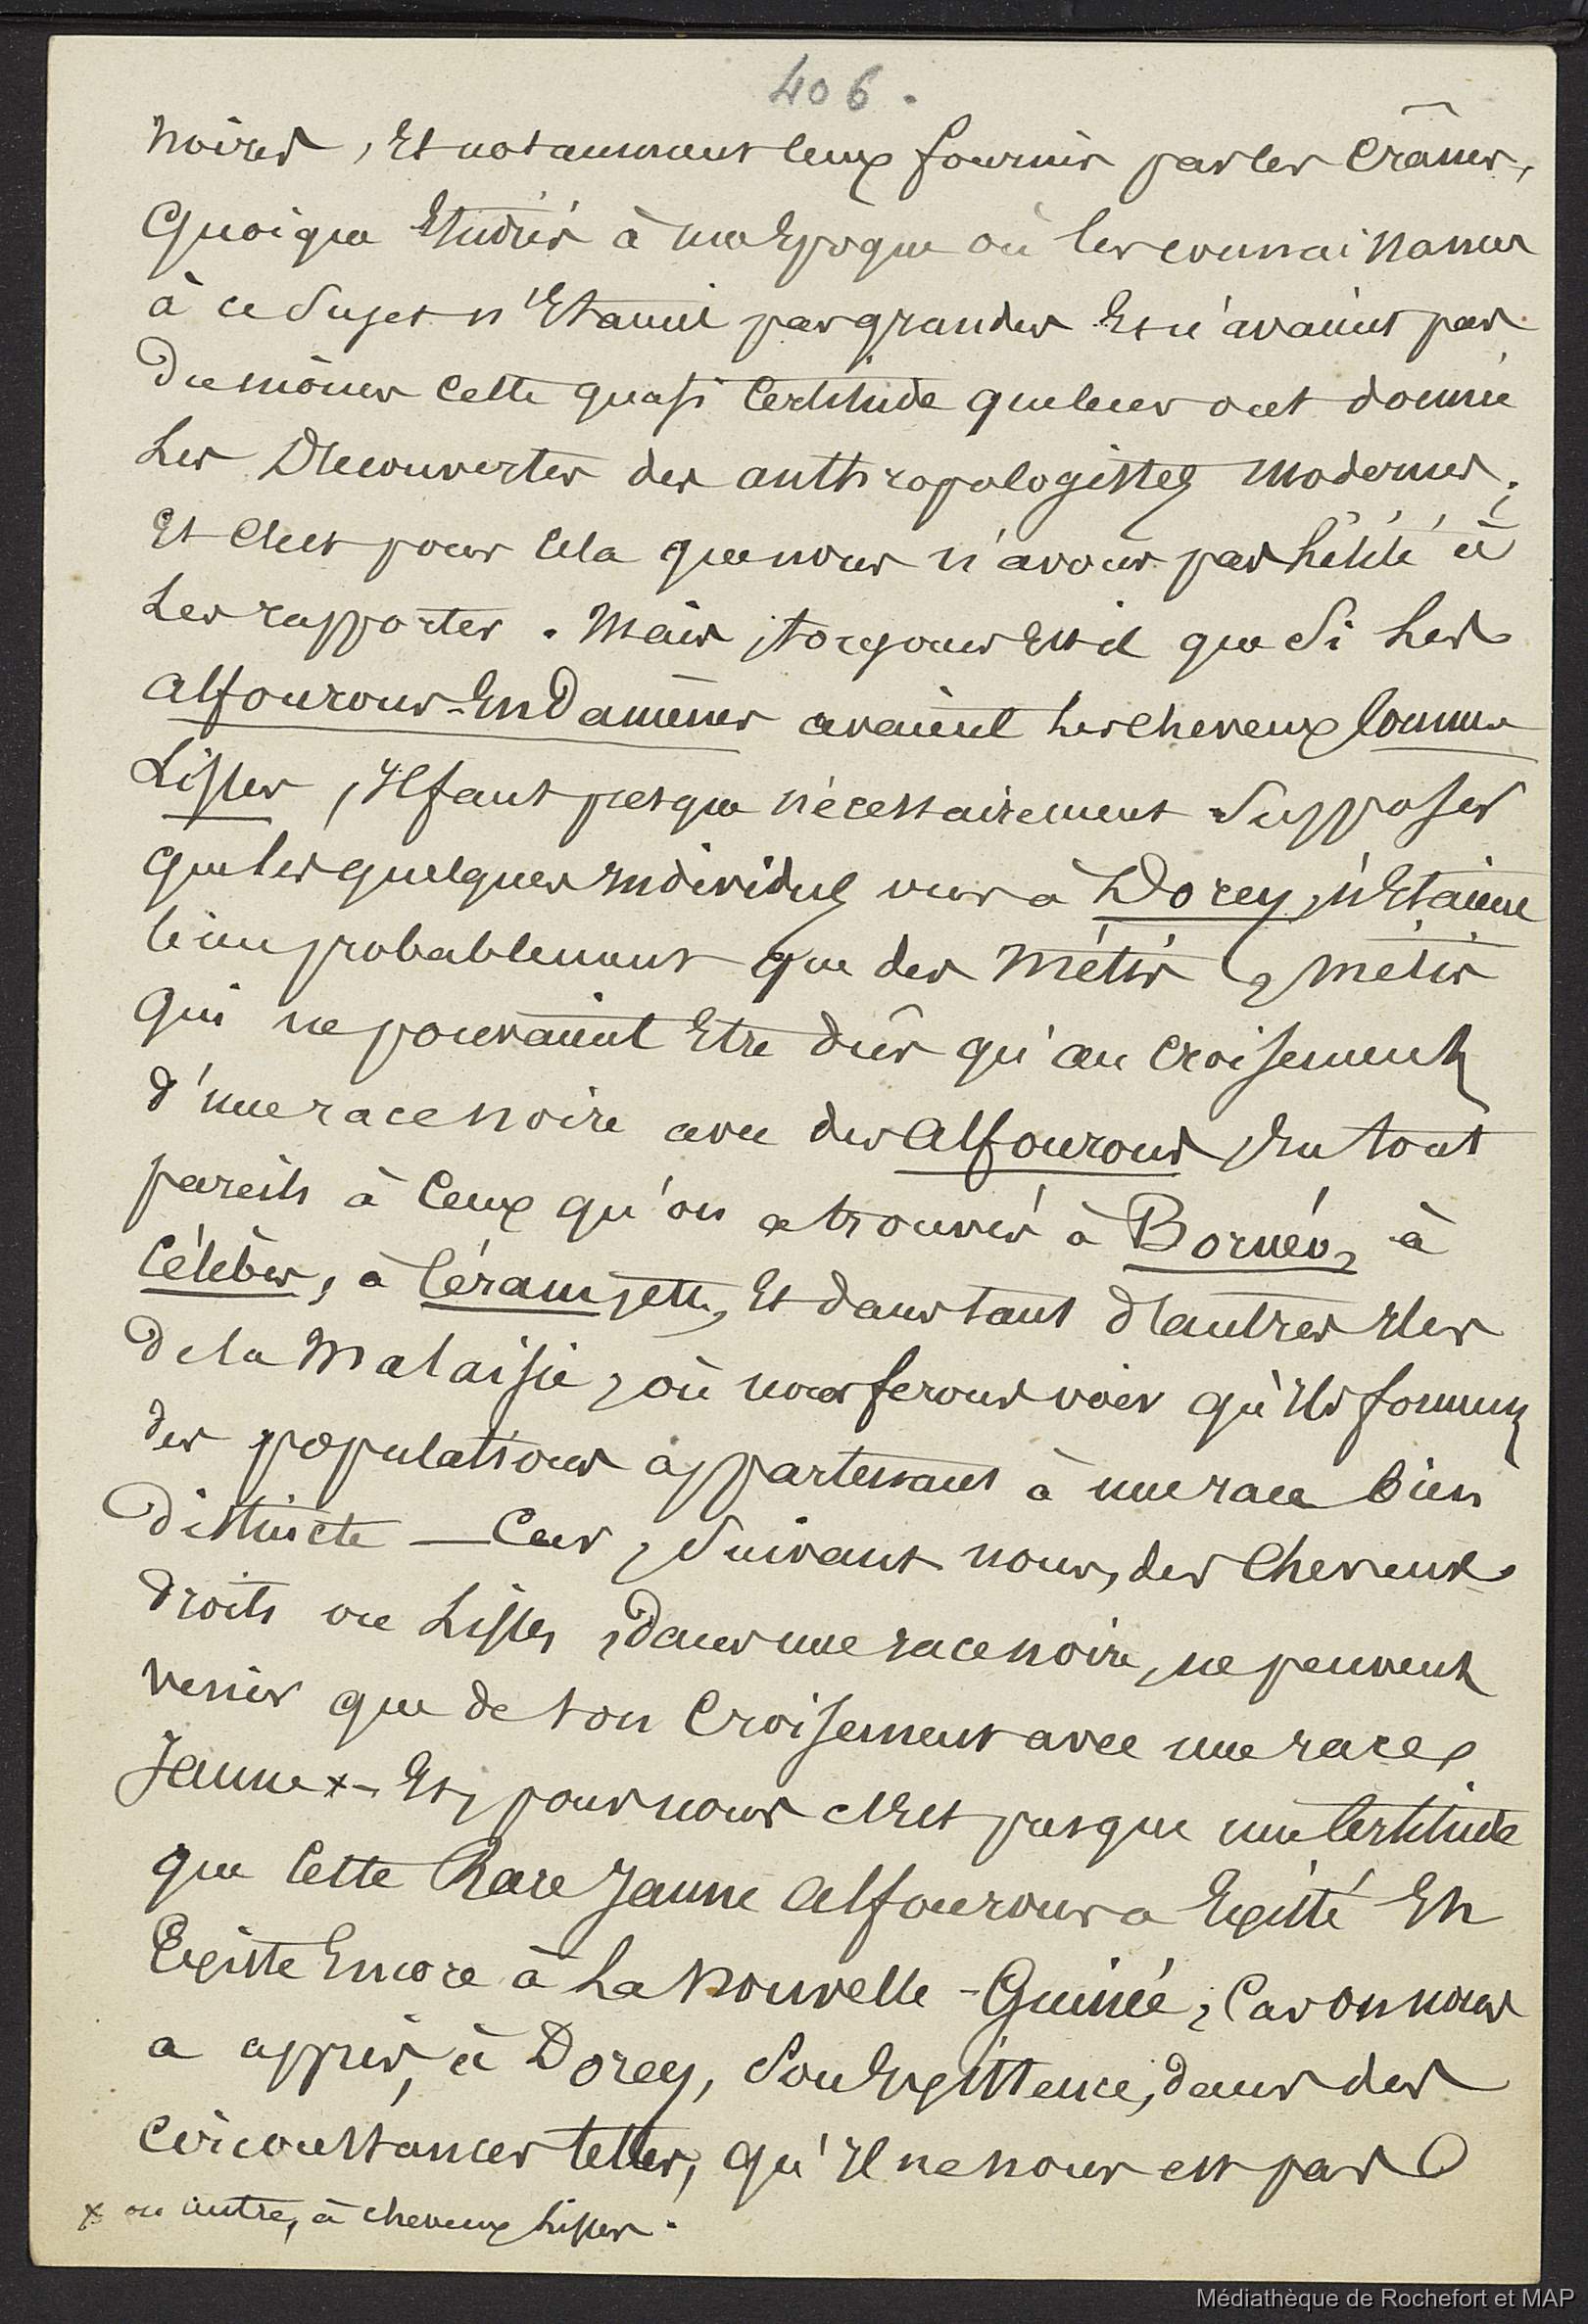 406.
noires, Et notamment ceux fournis par les Crânes,
Quoique Etudiés à une Epoque où les connaissances
à ce Sujet n'Etaient pas grandes Et n'avaient pas
Du moins cette quasi Certitude que leur ont donnée
Les Découvertes des anthropologistes modernes ;
Et C'est pour cela que nous n'avons pas hésité à
Les rapporter. Mais, toujours Est-il que Si Les
alfourous-EnDamênes avaient Les cheveux comme
Lisses, Il faut presque nécessairement Supposer
que les quelques Individus vus à Dorey, n'Etaient
bien probablement que des métis, métis
qui ne pouvaient Etre dûs qu'au croisement
d'une race noire avec des alfourous, En tout
pareils à Ceux qu'on a trouvés à Bornéo, à
Célèbes, à Céram, etc, Et dans tant d'autres Iles
De la Malaisie, où nous ferons voir qu'Ils forment
des populations appartenant à une race bien
Distincte — Car, Suivant nous, des Cheveux
droits ou Lisses, Dans une race noire, ne peuvent
venir que de son Croisement avec une race
Jaune x - Et, pour nous c'Est presque une Certitude
que Cette Race Jaune Alfourous a Existé Et
Existe Encore à La Nouvelle-Guinée, Car on nous
a appris, à Dorey, Son Existence, dans des
circonstances telles, qu'Il ne nous est pas
x ou autre, à cheveux Lisses.
Médiathèque de Rochefort et MAP